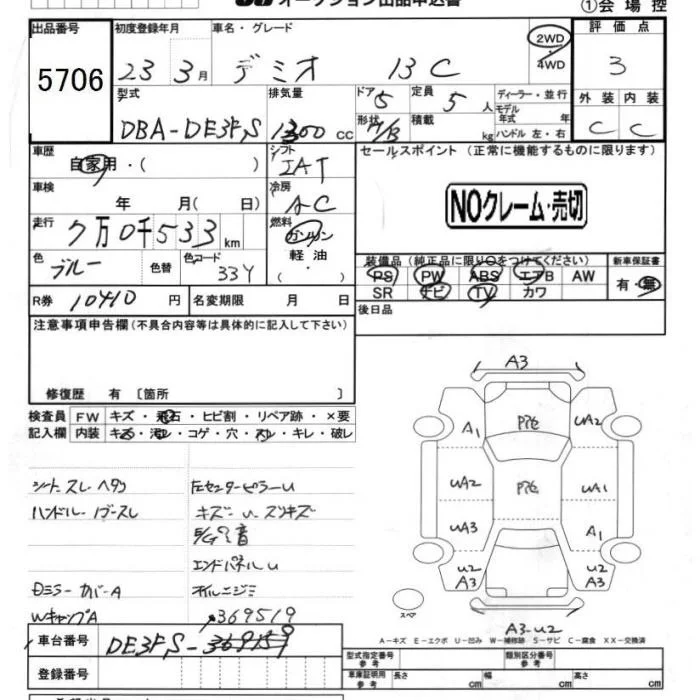 オークション出品申込書
①会場控
出品番号 初度登録年月 車名・グレード 評価点
5706 23 3月 デミオ 13C 2WD ・ 4WD 3
型式 排気量 ドア 5 定員 5人 ディーラー・並行 外装 内装
DBA-DE3FS 1300 CC 形状 H/B 積載 kg モデル年式 年 ハンドル 左・右 C C
車歴 自家用・( ) シフト IAT セールスポイント (正常に機能するものに限ります)
車検 年 月( 日) 冷房 AC NOクレーム・売切
走行 7万0千533km 燃料 ガソリン 軽油 ( ・ )
色 ブルー 色替 色コード 33Y
装備品 (純正品に限り○をつけてください) 新車保証書
PS PW ABS エアB AW 有・無
SR ナビ TV カワ
R券 10410 円 名変期限 月 日 後日品
注意事項申告欄(不具合内容等は具体的に記入して下さい)
修復歴 有 〔箇所 〕
検査員 FW キズ・飛石・ヒビ割・リペア跡・×要
記入欄 内装 キズ・汚レ・コゲ・穴・スレ・キレ・破レ
シートスレヘタリ 左センターピラーU
ハンドル
キズ
エンドパネルU
ミラーカバーA オイルニジミ
WキャップA 369519
車台番号 DE3FS-369159
登録番号
A3
A1 Pﾅﾋ UA2
UA2 Pﾅﾋ UA1
UA3 A1
U2 A3 U2 A3
スペア
A3-U2
A-キズ E-エクボ U-凹み W-補修跡 S-サビ C-腐食 XX-交換済
型式指定番号 参考 類別区分番号 参考
車庫証明用 参考 長さ cm 幅 cm 高さ cm